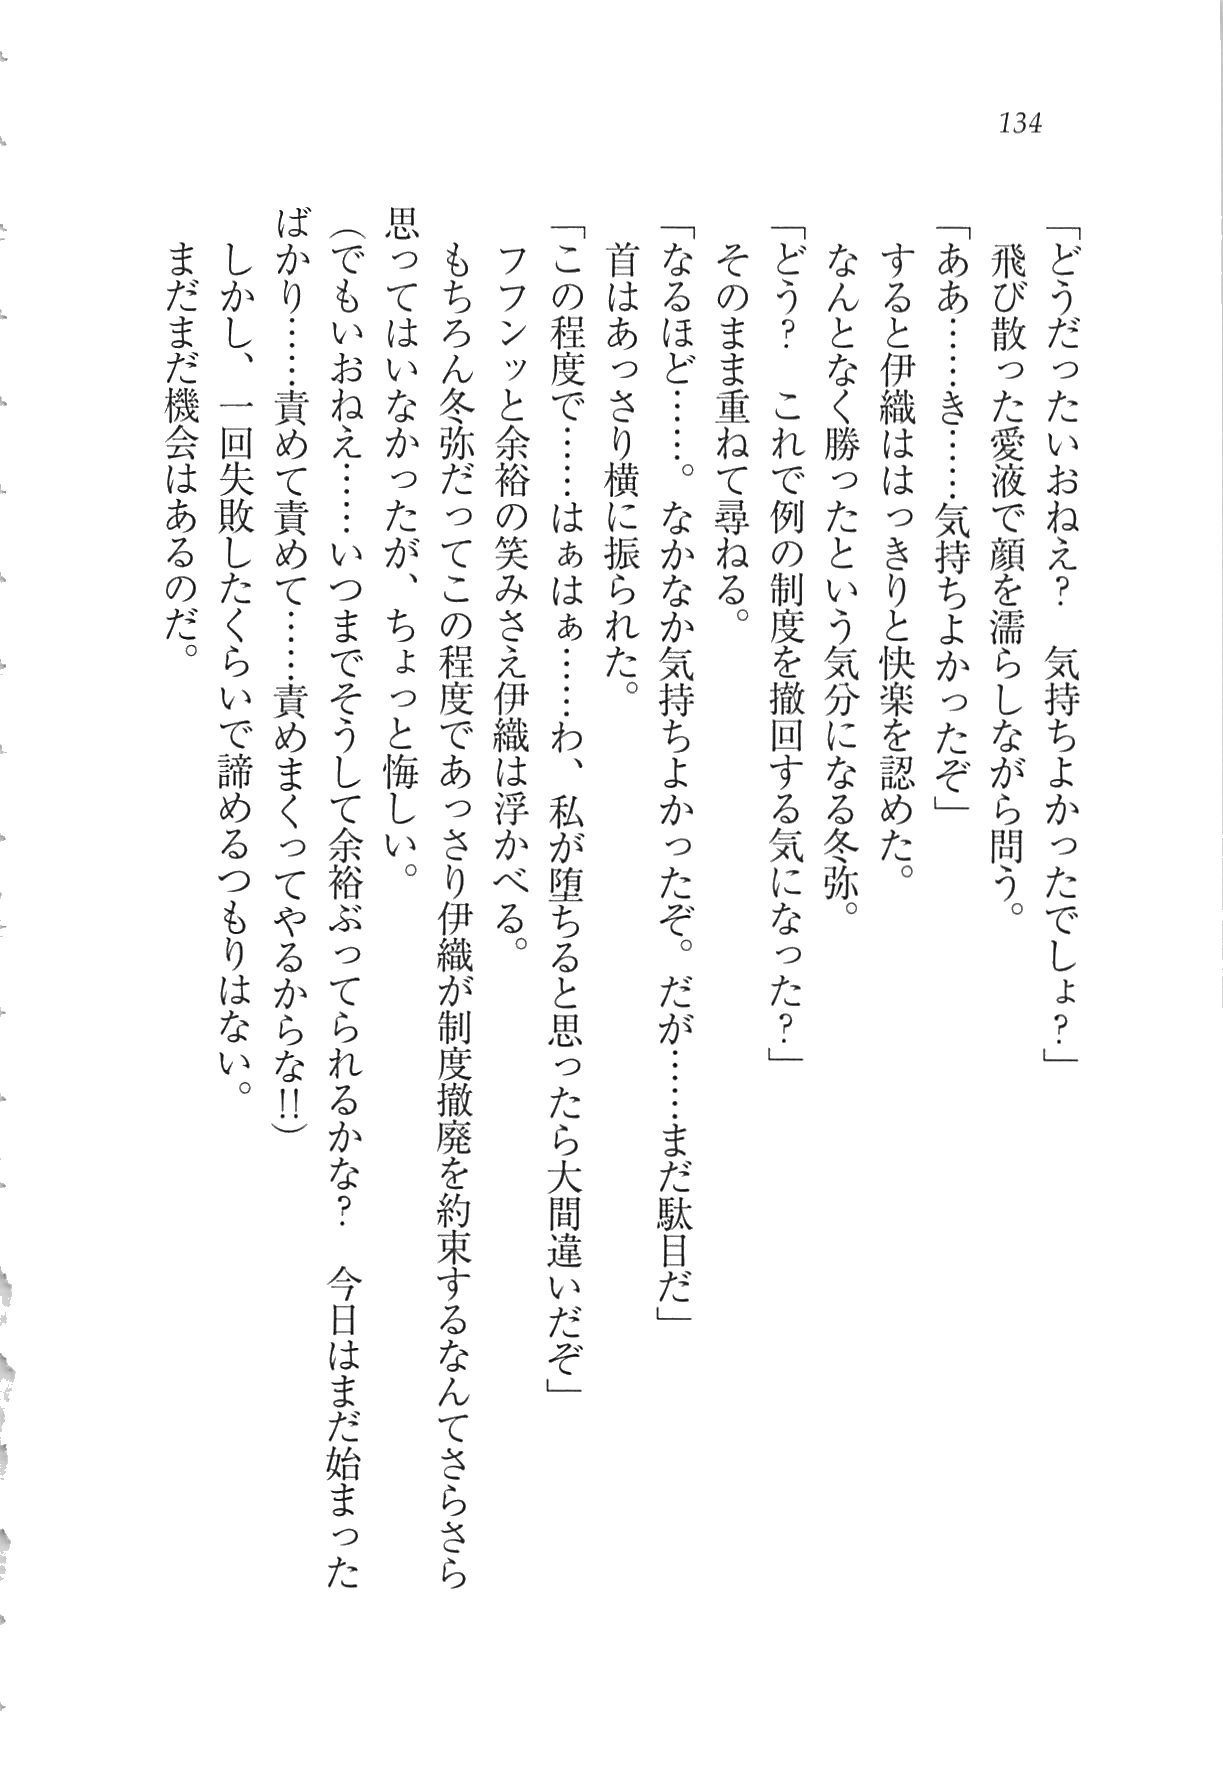 134
「どうだったいおねえ？　気持ちよかったでしょ？」
飛び散った愛液で顔を濡らしながら問う。
「ああ……き……気持ちよかったぞ」
すると伊織ははっきりと快楽を認めた。
なんとなく勝ったという気分になる冬弥。
「どう？　これで例の制度を撤回する気になった？」
そのまま重ねて尋ねる。
「なるほど……。なかなか気持ちよかったぞ。だが……まだ駄目だ」
首はあっさり横に振られた。
「この程度で……はぁはぁ……わ、私が堕ちると思ったら大間違いだぞ」
フフンッと余裕の笑みさえ伊織は浮かべる。
もちろん冬弥だってこの程度であっさり伊織が制度撤廃を約束するなんてさらさら
思ってはいなかったが、ちょっと悔しい。
（でもいおねえ……いつまでそうして余裕ぶってられるかな？　今日はまだ始まった
ばかり……責めて責めて……責めまくってやるからな!!）
しかし、一回失敗したくらいで諦めるつもりはない。
まだまだ機会はあるのだ。